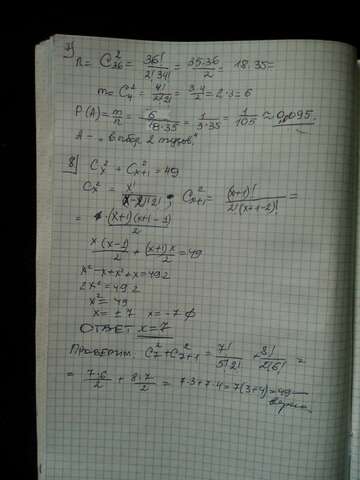 7)
n = C²₃₆ = 36!/(2!34!) = 35·36/2 = 18·35 =
m = C²₄ = 4!/(2!2!) = 3·4/2 = 2·3 = 6
P(A) = m/n = 6/(18·35) = 1/(3·35) = 1/105 ≈ 0,095.
A – „ выбор 2 тузов".
8) Cₓ² + Cₓ₊₁² = 49
Cₓ² = x!/((x-2)!2!) ; Cₓ₊₁² = (x+1)!/(2!(x+1-2)!) =
= (x+1)(x+1-1)/2
x(x-1)/2 + (x+1)x/2 = 49
x² - x + x² + x = 49·2
2x² = 49·2
x² = 49
x = ± 7 x = -7 ∅
ОТВЕТ x = 7
Проверим C₇² + C₇₊₁² = 7!/(5!2!) + 8!/(2!6!) =
= 7·6/2 + 8·7/2 = 7·3 + 7·4 = 7(3+4) = 49 —
верно.